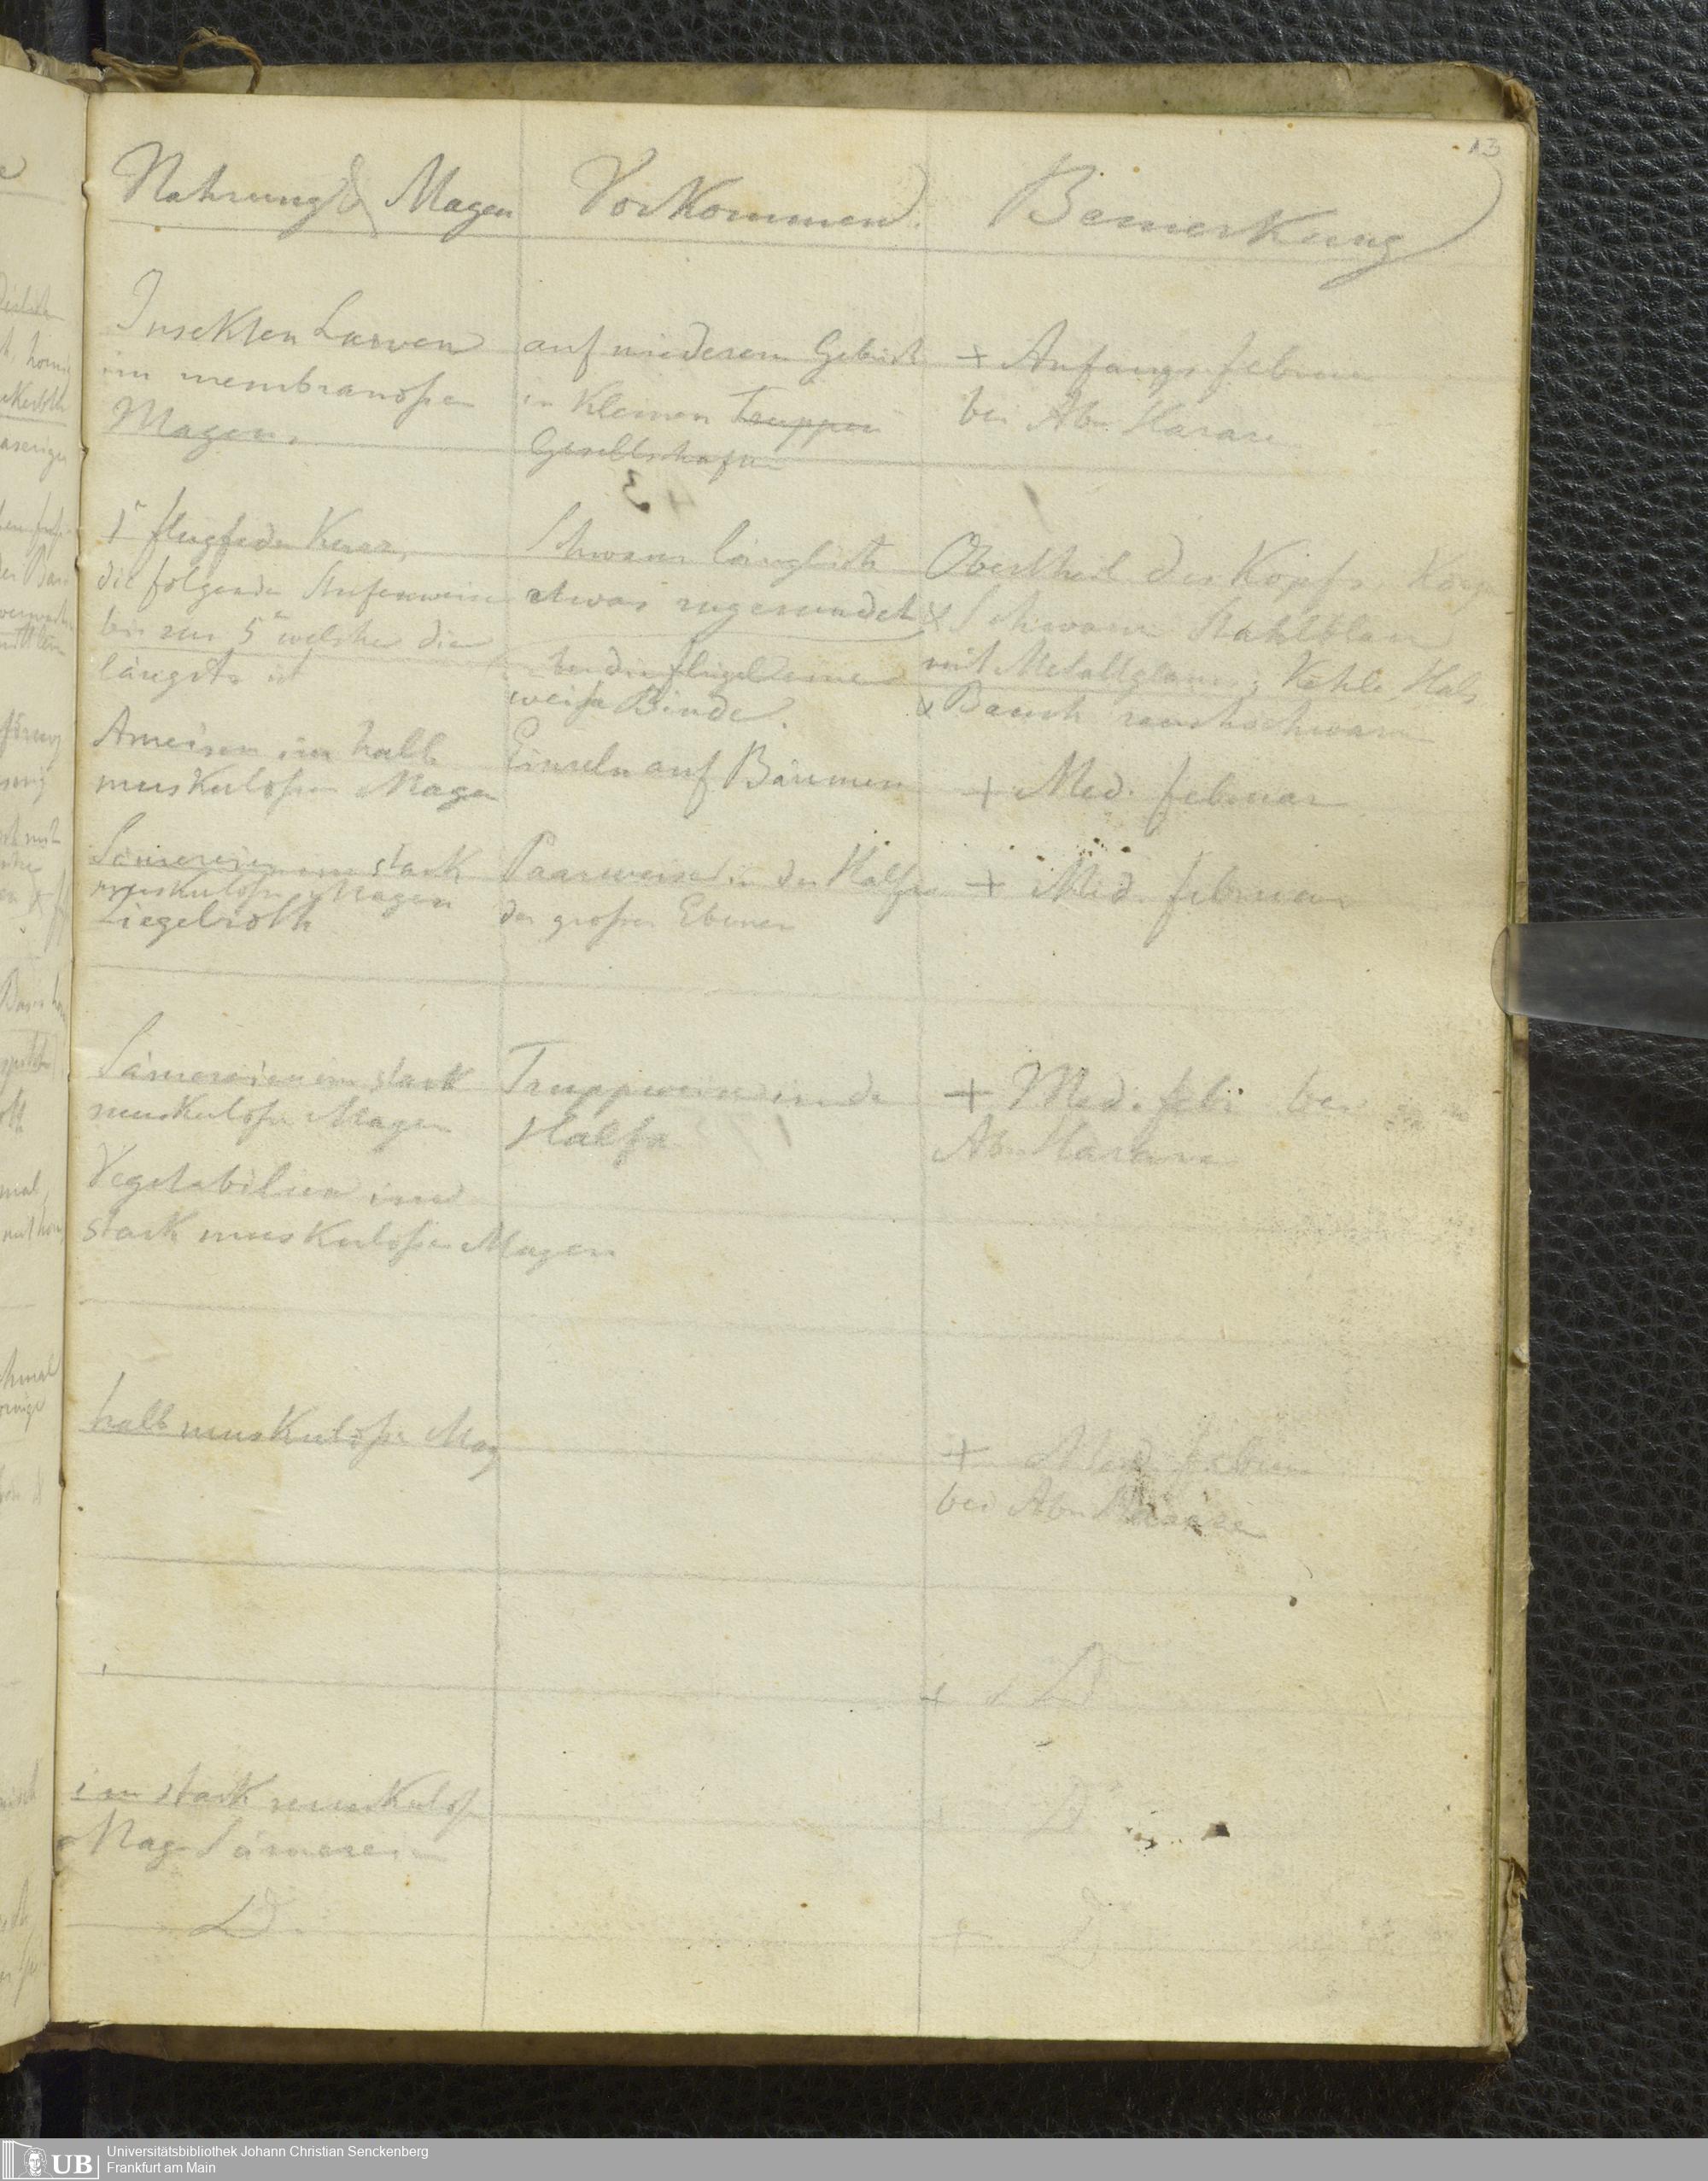 13
Nahrung & Magen
Vorkommen
Bemerkung
Insekten Larven
im membranosen
Magen.
auf niederem Gebüsch
in Kleinen Truppen
Gesellschaften
+ Anfangs februar
bei Abu Harare
1e flugfeder Kurz,
die folgende Stufenweise
bis zur 5e welche die
längste ist
Schwanz länglich
etwas zugerundet
weiße Binde.
Obertheil des Kopfs, Körp
& Schwanz Stahlblau
mit Metallglanz; Kehle Hals
& Bauch rauchschwarz
Ameisen im halb
muskulosen Magen
Einzeln auf Bäumen
+ Med. februar
Sämereien im stark
muskulosen Magen
Ziegelroth
Paarweise in der Halfa
der großen Ebenen
+ Med. februar
Sämereien im stark
muskulosen Magen
Truppweise in der
Halfa
+ Med. febr bei
Abu Harare
Vegetabilien im
stark muskulosen Magen
halb muskuloser Mag
+ Med. februar
bei Abu Harare
+ D
im stark muskulosen
Mag Sämereien
D
D.
+ D
UB
Universitätsbibliothek Johann Christian Senckenberg
Frankfurt am Main